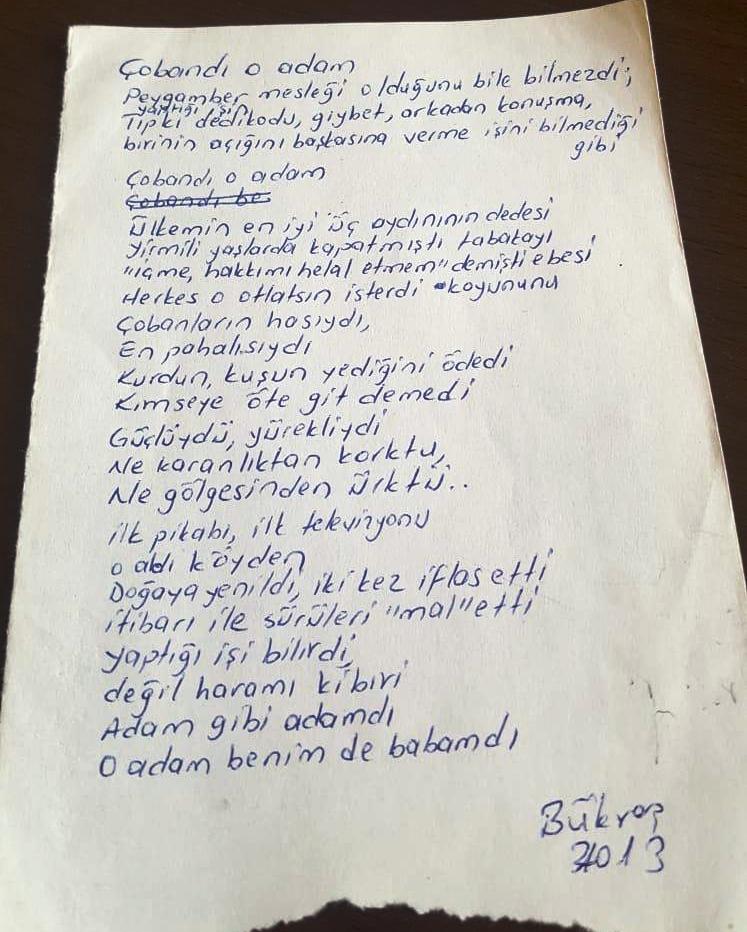 Çobandı o adam
Peygamber mesleği olduğunu bile bilmezdi;
yaptığı işi
Tıpkı dedikodu, giybet, arkadan konuşma,
birinin açığını başkasına verme işini bilmediği
gibi
Çobandı o adam
Çobandı be
Ülkemin en iyi üç aydınının dedesi
Yirmili yaşlarda kapatmıştı tabakayı
"içme, hakkımı helal etmem" demişti ebesi
Herkes o otlatsın isterdi koyununu
Çobanların hasıydı,
En pahalısıydı
Kurdun, kuşun yediğini ödedi
Kimseye öte git demedi
Güçlüydü, yürekliydi
Ne karanlıktan korktu,
Ne gölgesinden ürktü..
ilk pikabı, ilk televizyonu
o aldı köyden
Doğaya yenildi, iki kez iflas etti
itibarı ile sürüleri "mal" etti
yaptığı işi bilirdi,
değil haramı kibiri
Adam gibi adamdı
O adam benim de babamdı
2013